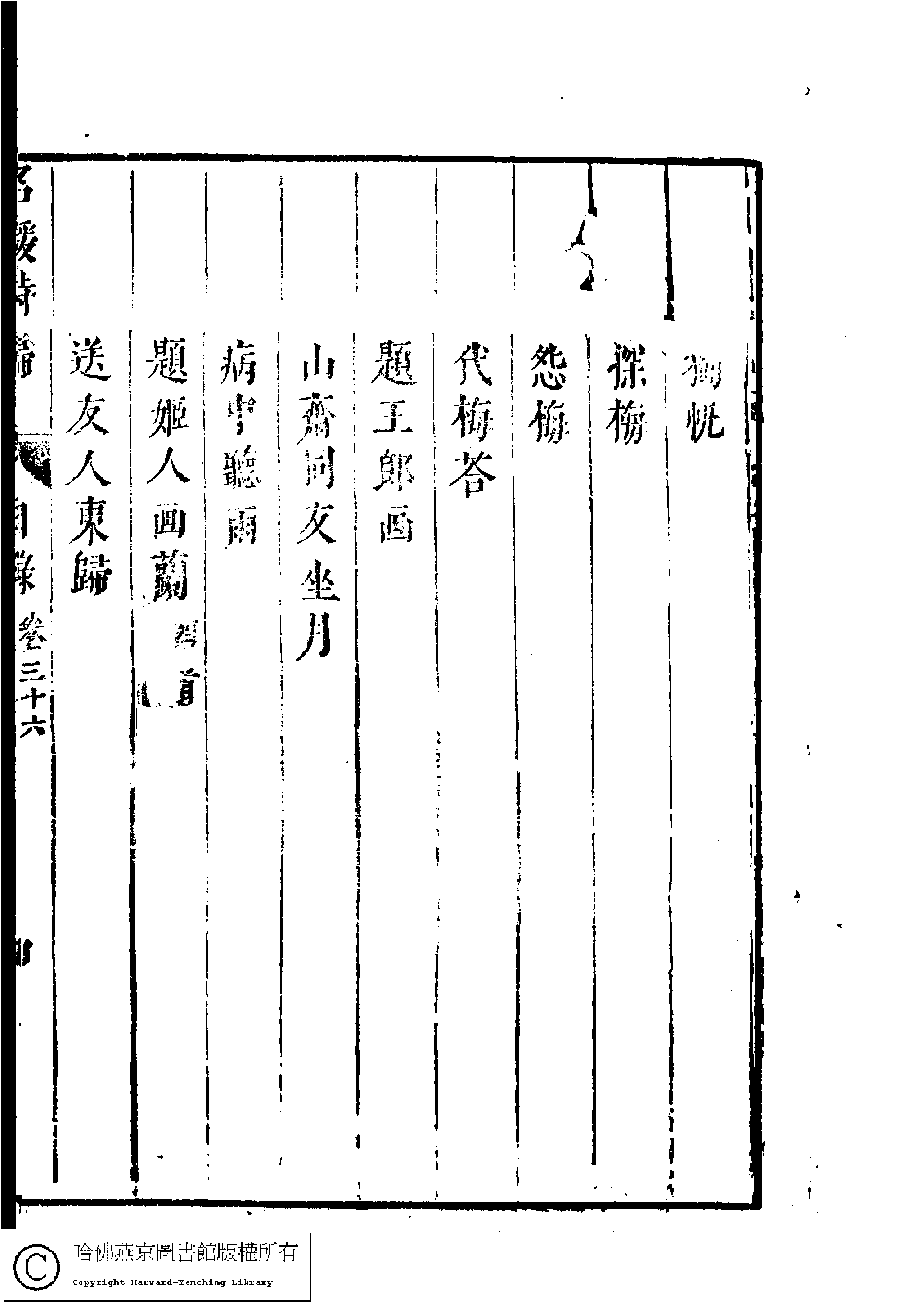 獨恍
探梅
怨梅
代梅荅
題王郎画
山齋同友坐月
病中聽雨
題姬人画蘭四首
送友人東歸
名媛詩 目錄 卷三十六
哈佛燕京圖書館版權所有
Copyright Harvard-Yenching Library